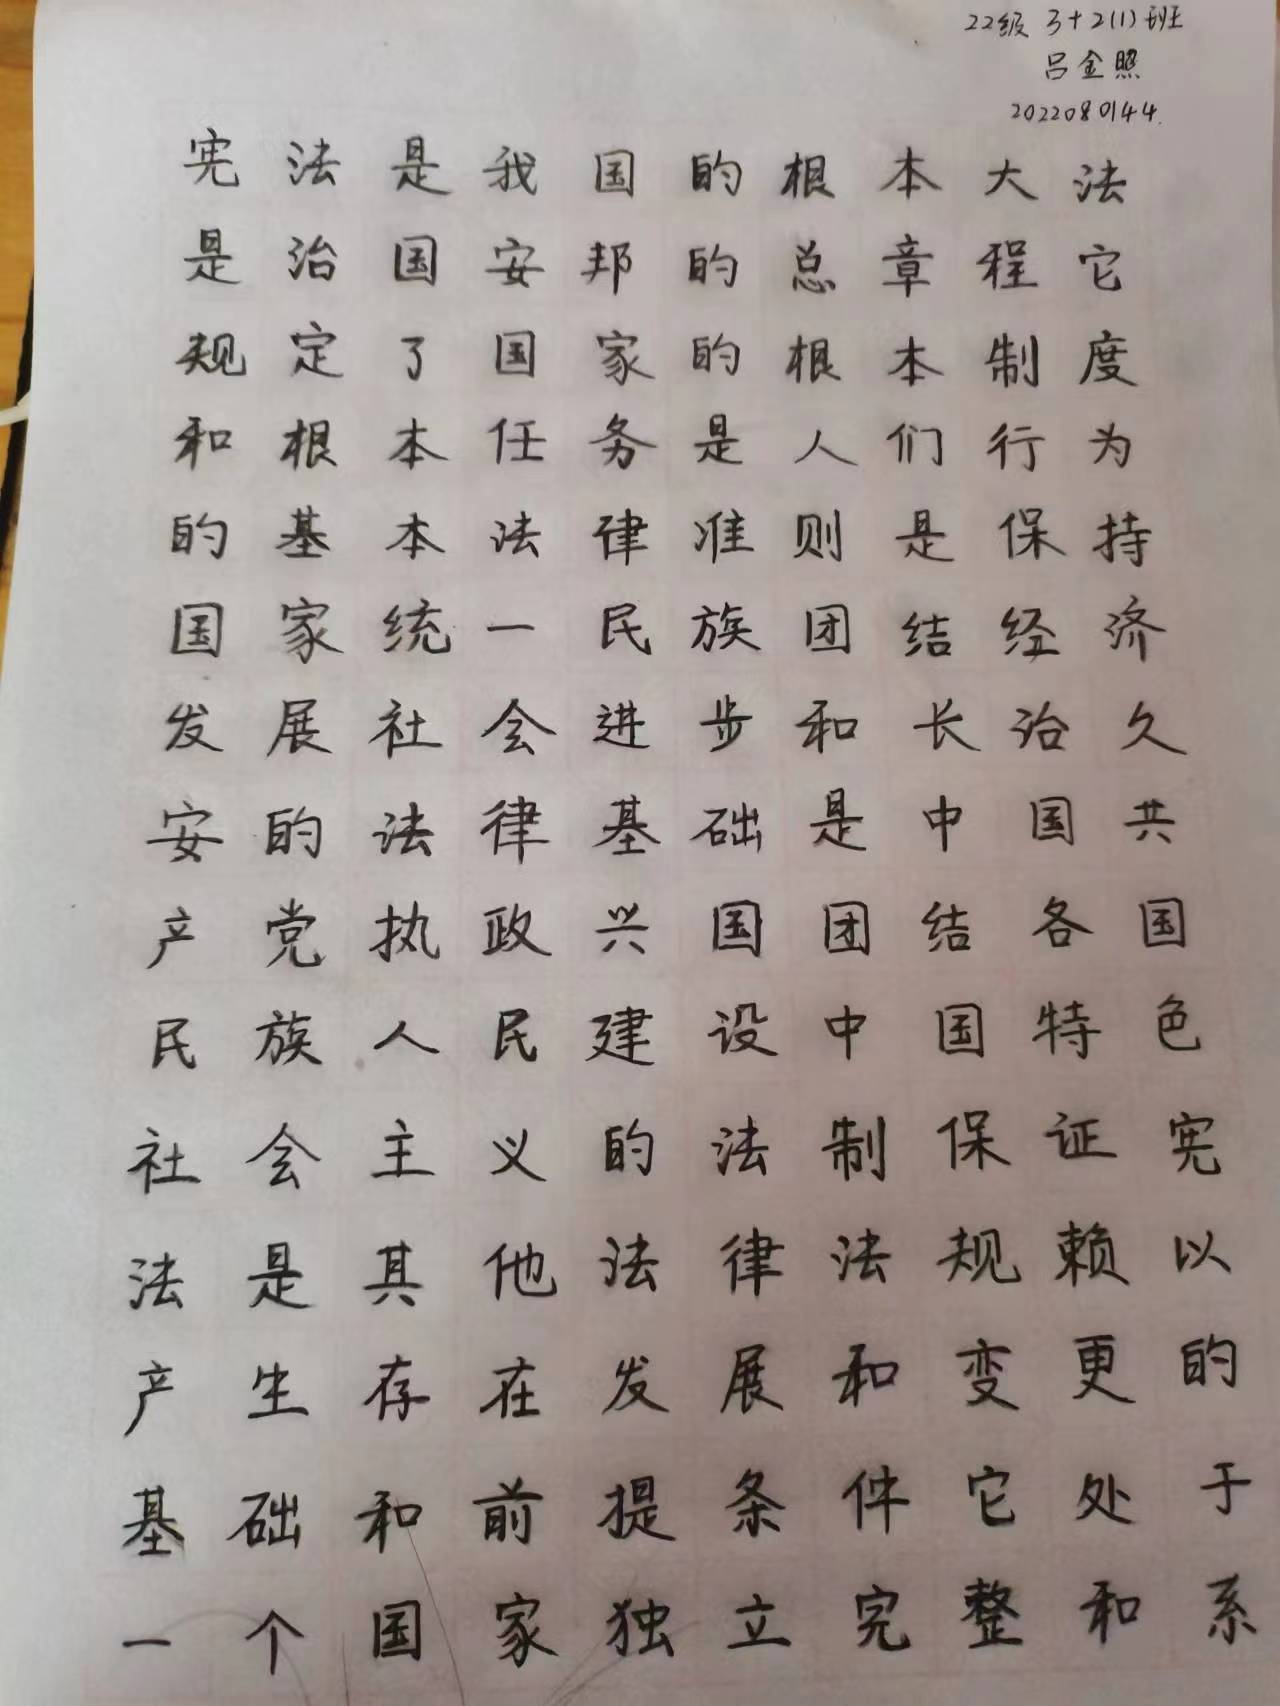 22级 3+2(1)班
吕金照
2022080144
宪法是我国的根本大法
是治国安邦的总章程它
规定了国家的根本制度
和根本任务是人们行为
的基本法律准则是保持
国家统一民族团结经济
发展社会进步和长治久
安的法律基础是中国共
产党执政兴国团结各国
民族人民建设中国特色
社会主义的法制保证宪
法是其他法律法规赖以
产生存在发展和变更的
基础和前提条件它处于
一个国家独立完整和系